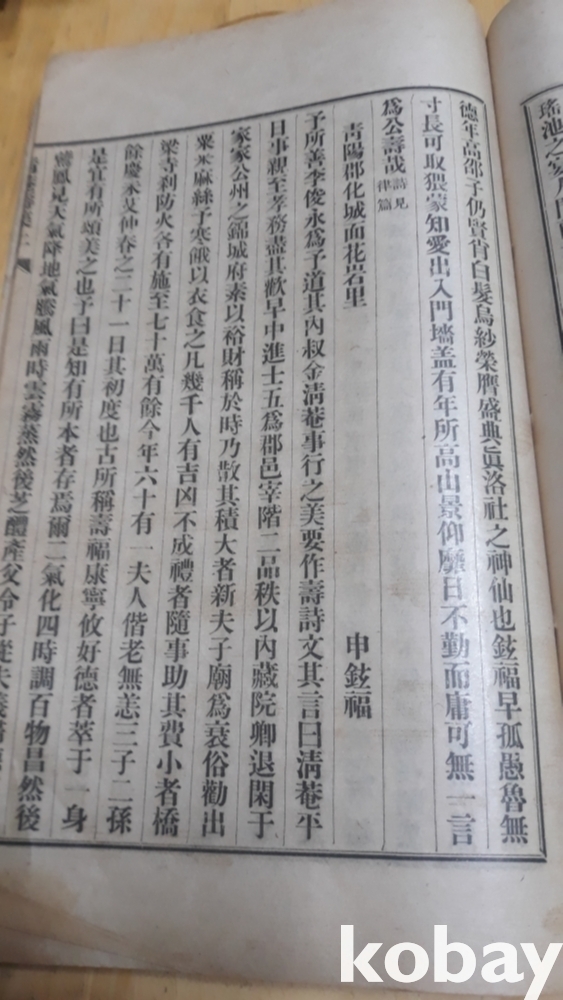 瑤池之宴
德年高邵子仍賢肖白髮烏紗榮膺盛典眞洛社之神仙也鉉福早孤愚魯無
寸長可取猥蒙知愛出入門墻盖有年所高山景仰靡日不勤而庸可無一言
爲公壽哉 詩見律篇
青陽郡化城面花岩里
申鉉福
予所善李俊永爲予道其內叔金淸菴事行之美要作壽詩文其言曰淸菴平
日事親至孝務盡其歡早中進士五爲郡邑宰階二品秩以內藏院卿退閑于
家家公州之錦城府素以裕財稱於時乃散其積大者新夫子廟爲衰俗勸出
粟米麻絲予寒餓以衣食之凡幾千人有吉凶不成禮者隨事助其費小者橋
梁寺刹防火各有施至七十萬有餘今年六十有一夫人偕老無恙三子二孫
餘慶未艾仲春之二十一日其初度也古所稱壽福康寧攸好德者萃于一身
是宜有所頌美之也予曰是知有所本者存焉爾二氣化四時調百物昌然後
鳳見天氣降地氣騰風雨時雲霧蒸然後芝醴產父令子從夫義
kobay